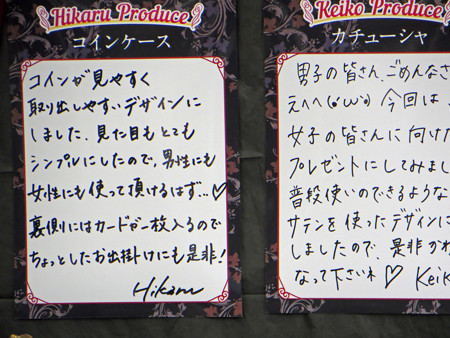 Hikaru Produce
コインケース
コインが見やすく
取り出しやすいデザインに
しました、見た目もとても
シンプルにしたので、男性にも
女性にも使って頂けるはず…♡
裏側にはカードが一枚入るので
ちょっとしたお出掛けにも是非!
Hikaru
Keiko Produce
カチューシャ
男子の皆さん、ごめんなさ
えへへ(・ω・) 今回は、
女子の皆さんに向けた
プレゼントにしてみまし
普段使いのできるような
サテンを使ったデザインに
しましたので、是非
なって下さいね♡ Keik